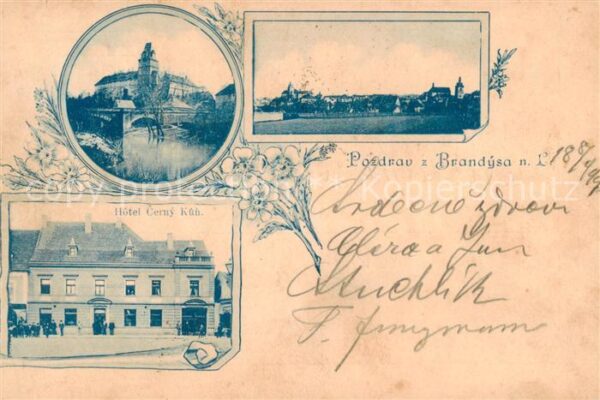 Pozdrav z Brandýsa n. L.
Hôtel Černý Kůň.
Srdečné zdraví
a Jan
Stuchlík
F. Jungmann
copy protection Kopierschutz